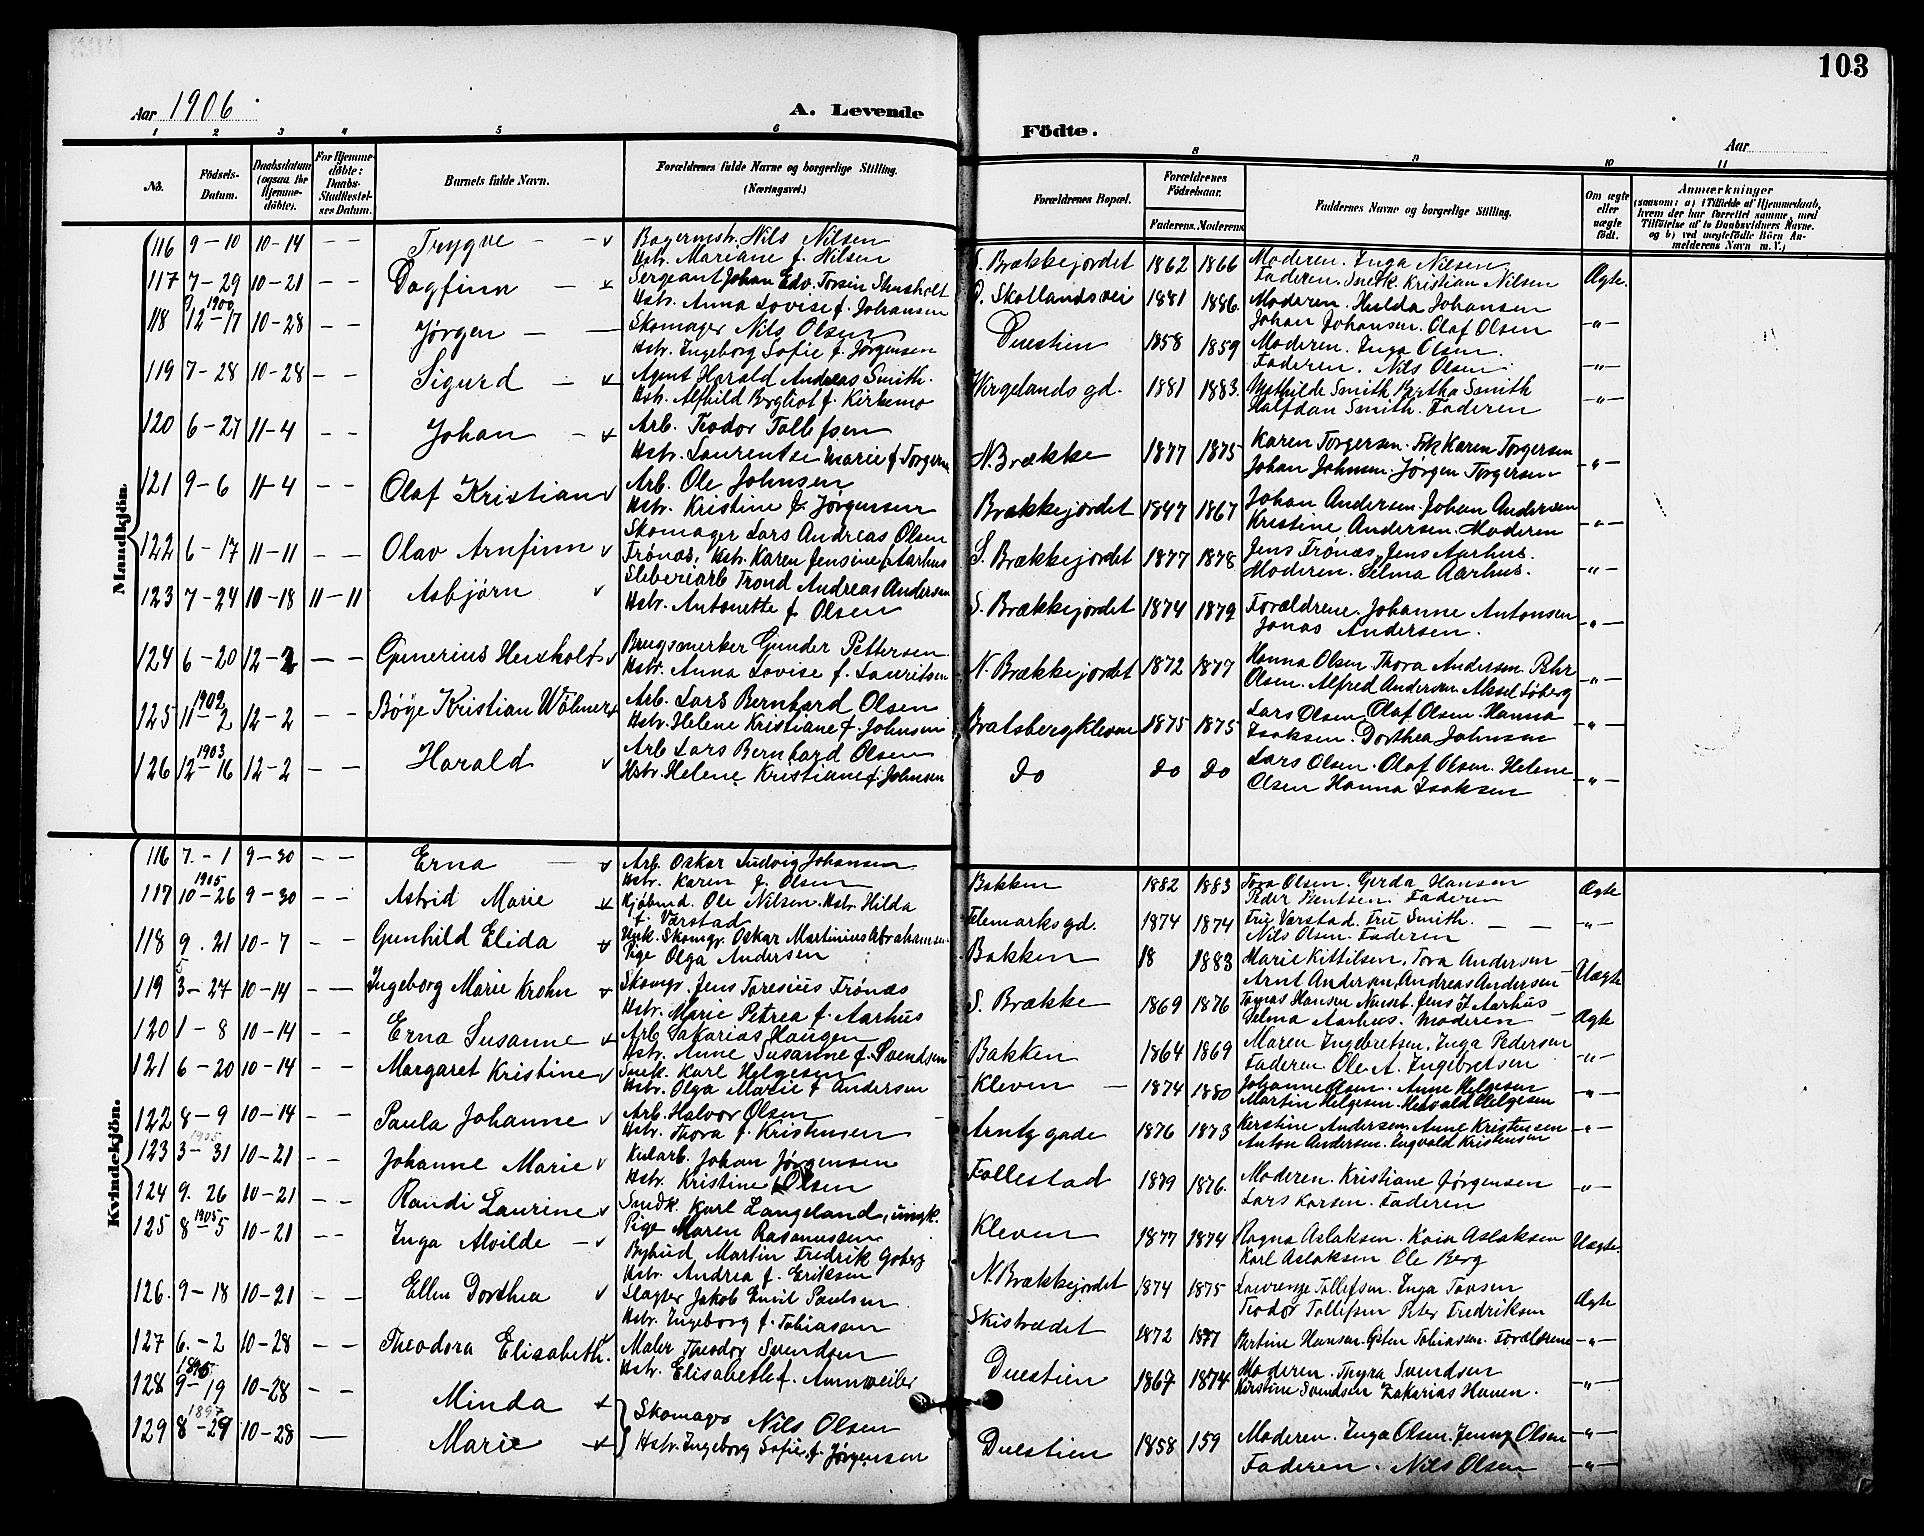 103
Aar 1906.
A. Levende
Födte.
Aar
1 2 3 4 5 6 8 9 10 11
No.
Födsels-Datum.
Daabsdatum (ogsaa for Hjemme-döbte).
For Hjemme-döbte: Daabs-Stadfæstel-ses Datum.
Barnets fulde Navn.
Forældrenes fulde Navne og borgerlige Stilling. (Næringsvei.)
Forældrenes Bopæl.
Forældrenes Födselsaar.
Faderens. Moderens.
Faddernes Navne og borgerlige Stilling.
Om ægte eller uægte födt.
Anmærkninger
(saasom: a) i Tilfælde af Hjemmedaab, hvem der har forrettet samme, med Tilföielse af to Daabsvidners Navne, og b) ved uægtefödte Börn Anmelderens Navn m. V.)
Mandkjön.
116 9-10 10-14 - - Trygve - Bagermstr. Nils Nilsen
Hstr. Mariane f. Nilsen
S. Brækkejordet 1862 1866 Moderen. Inga Nilsen
Faderen. Snedk. Kristian Nilsen Ægte.
117 7-29 10-21 - - Dagfinn - Sergeant Johan Edv. Torsin Skusholt
Hstr. Anna Lovise f. Johansen
Ø. Skotlandsvei 1881 1886 Moderen. Hulda Johansen
Johan Johansen. Olaf Olsen -"-
118 1900 12-17 10-28 - - Jørgen - - Skomager Nils Olsen
Hstr. Ingeborg Sofie f. Jørgensen
Duestien 1858 1859 Moderen. Inga Olsen.
Faderen. Nils Olsen -"-
119 7-28 10-28 - - Sigurd - Agent Harald Andreas Smith.
Hstr. Alfhild Bergliot f. Kirkemo
Wergelands gd. 1881 1883. Mathilde Smith Bertha Smith
Halfdan Smith. Faderen -"-
120 6-27 11-4 - - Johan - Arb. Teodor Tollefsen
Hstr. Laurentse Marie f. Torgersen
N. Brække 1877 1875 Karen Torgersen. Frk Karen Torgersen
Johan Johnsen. Jørgen Torgersen -"-
121 9-6 11-4 - - Olaf Kristian Arb. Ole Johnsen
Hstr. Kristine f. Jørgensen
Brækkejordet 1847 1867 Johan Andersen. Johan Andersen
Kristine Andersen. Moderen -"-
122 6-17 11-11 - - Olav Arnfinn Skomager Lars Andreas Olsen
Frönæs. Hstr. Karen Jensine f. Aarhus
S. Brækkejordet 1877 1878 Jens Frönæs, Jens Aarhus.
Moderen. Selma Aarhus. -"-
123 7-24 10-18 11-11 Asbjørn Sliberiarb Trond Andreas Andersen
Hstr. Antonette f. Olsen
S. Brækkejordet 1874 1879 Forældrene. Johanne Antonsen
Jonas Andersen. -"-
124 6-20 12-2 - - Gunerius Hersholdt Brugsmerker Gunder Pettersen
Hstr. Anna Lovise f. Lauritsen
N. Brækkejordet 1872 1877 Hanna Olsen. Thora Andersen. Pehr
Olsen. Alfred Andersen. Aksel Löberg -"-
125 1902 11-2 12-2 - - Bøye Kristian Wölner Arb. Lars Bernhard Olsen
Hstr. Helene Kristiane f. Johnsen
Bratsbergkleven 1875 1875 Lars Olsen. Olaf Olsen. Hanna
Isaksen. Dorthea Johnsen -"-
126 1903 12-16 12-2 - - Harald Arb Lars Bernhard Olsen
Hstr. Helene Kristiane f. Johnsen
do do do Lars Olsen. Olaf Olsen. Helene
Olsen Hanna Isaksen -"-
Kvindekjön.
116 7.-1 9-30 - - Erna - Arb. Oskar Ludvig Johansen
Hstr. Karen f. Olsen
Bakken 1882 1883 Tora Olsen. Gerda Hansen
Peder Bentsen. Faderen Ægte
117 1905 10-26 9-30 - - Astrid Marie Kjöbmd. Ole Nilsen. Hstr. Hilda
f. Varstad
Telemarks gd. 1874 1874 Fru Varstad. Fru Smith.
Nils Olsen. Faderen -"-
118 9.21 10-7 - - Gunhild Elida Ungk. Skomgr. Oskar Martinius Abrahamsen
Pige Olga Andersen
Bakken 18 1883 Marie Kittilsen, Tora Andersen
Arnt Andersen, Andreas Andersen Uægte
119 3-27 10-14 - - Ingeborg Marie Krohn Skomgr. Jens Taresius Frönæs
Hstr. Marie Petrea f. Aarhus
S. Brække 1869 1876 Tomas Hansen Nuset. Jens J Aarhus
Selma Aarhus. Moderen Ægte
120 1-8 10-14 - - Erna Susanne Arb. Sakarias Haugen
Hstr. Anne Susanne f. Svendsen
Bakken 1864 1869 Maren Ingebretsen. Inga Pedersen
Faderen Ole A. Ingebretsen -"-
121 6-20 10-14 - - Margaret Kristine Snek. Karl Helgesen
Hstr. Olga Marie f Andersen
Kleven - 1874 1880 Johanne Olsen. Anne Helgesen
Martin Helgesen. Hedvald Helgesen -"-
122 8-9 10-14 - - Paula Johanne Arb. Halvor Olsen
Hstr. Thora f. Kristensen
Arntz gade 1876 1873 Kerstine Andersen. Anne Kristensen
Anton Andersen. Engvald Kristensen -"-
123 1905 3-31 10-21 - - Johanne Marie Kularb. Johan Jørgensen
Hstr. Kristine f. Olsen
Follestad 1879 1876. Moderen. Kristiane Jørgensen
Lars Larsen. Faderen -"-
124 9.26 10-21 - - Randi Laurine Snedk. Karl Langeland, ungk.
Pige Maren Rasmussen
Kleven 1877 1874 Ragna Aslaksen. Kaia Aslaksen
Karl Aslaksen Ole Berg Uægte.
125 1905 8-5 10-21 - - Inga Alvilde - Bybud Martin Fredrik Goberg
Hstr. Andrea f. Eriksen
N. Brækkejordet 1874 1875 Laurense Tollefsen. Inga Tovsen
Teodor Tollefsen Peter Fredriksen Ægte
126. 9-18 10-21 - - Ellen Dorthea Slagter Jakob Emil Paulsen
Hstr. Ingeborg f. Tobiassen
Skistrædet 1872 1877 Bertine Hansen. Gusten Tobiassen. Forældrene -"-
127 6.-2 10-28 - - Theodora Elisabeth. Maler Theodor Svendsen
Hstr. Elisabeth f. Annweiler
Duestien 1867 1874 Moderen. Thyra Svendsen
Kirstine Svendsen Zakarias Hansen. -"-
128 1895 9-19 10-28 - - Minda
129 1897 8-29 10-28 - Marie
Skomager Nils Olsen
Hstr. Ingeborg Sofie f. Jørgensen
Duestien 1858 159 Moderen. Inga Olsen. Jenny Olsen -"-
Faderen. Nils Olsen -"-